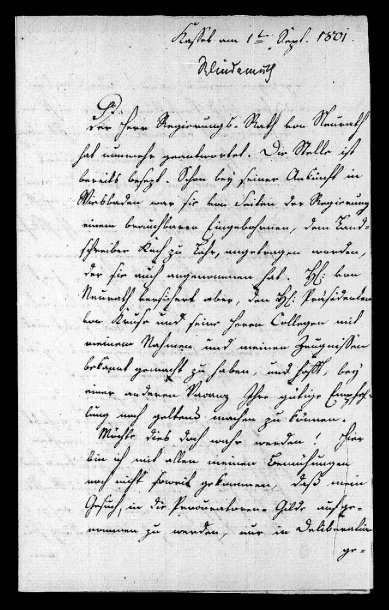 Kassel am 1t. Sept. 1801.
Windemuth
P. P.
Der Herr Regierungs-Rath von Neurath
hat nunmehr geantwortet. Die Stelle ist
bereits besezt. Schon bey seiner Ankunft in
Wiesbaden war sie von Seiten der Regierung
einem brauchbaren Eingebohrnen, dem Land-
schreiber zu angetragen worden,
der sie auch angenommen hat. H: von
Neurath versichert aber, den H: Präsidenten
von Kruse und seine Herrn Collegen mit
meinem Nahmen und meinen Zeugnissen
bekannt gemacht zu haben, und hofft, bey
einer anderen Vacanz Ihre gütige Empfeh-
lung noch geltend machen zu können.
Möchte dies doch wahr werden! Hier
bin ich mit allen meinen Bemühungen
noch nicht soweit gekommen, daß mein
Gesuch, in die Procuratoren-Gilde aufge-
nommen zu werden, nur in Deliberation
ge-